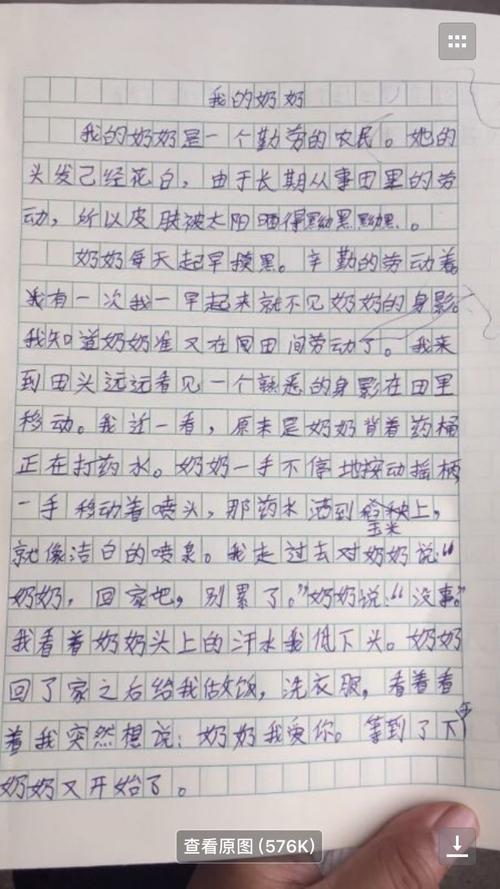 我的奶奶
我的奶奶是一个勤劳的农民。她的
头发已经花白，由于长期从事田里的劳
动，所以皮肤被太阳晒得黝黑黝黑。
奶奶每天起早摸黑。辛勤的劳动着。
有一次我一早起来就不见奶奶的身影。
我知道奶奶准又在田间劳动了。我来
到田头远远看见一个熟悉的身影在田里
移动。我近一看，原来是奶奶背着药桶
正在打药水。奶奶一手不停地按动摇柄
一手移动着喷头，那药水洒到秧上，
玉米
就像洁白的喷泉。我走过去对奶奶说：“
奶奶，回家吧，别累了。”奶奶说：“没事。”
我看着奶奶头上的汗水我低下头。奶奶
回了家之后给我做饭，洗衣服，看着看
着我突然想说：奶奶我爱你。等到了下午
奶奶又开始了。
查看原图 (576K)